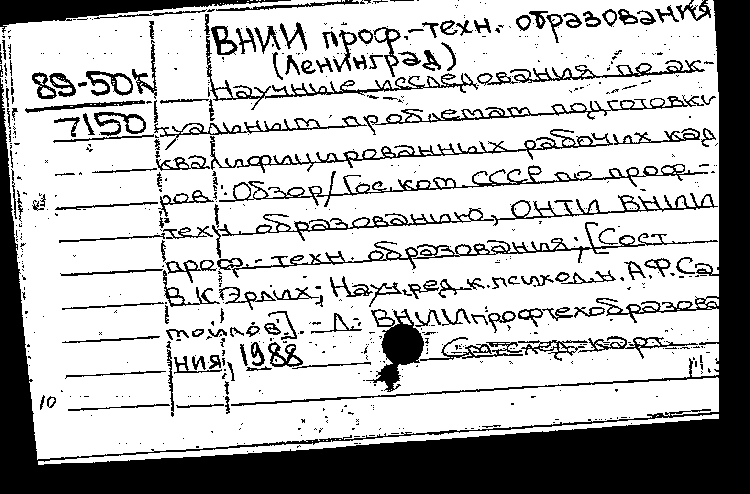 ВНИИ проф.-техн. образования
(Ленинград)
89-50к
7150
Научные исследования по ак-
туальным проблемам подготовки
квалифицированных рабочих кад
ров: Обзор/Гос. ком. СССР по проф.-
техн. образованию, ОНТИ ВНИИ
проф.-техн. образования; [Сост.
В.К Эрлих; Науч. ред. к. психол. н. А.Ф. Са-
мойлов]. - Л.: ВНИИпрофтехобразова
ния, 1988
См. след. карт.
10